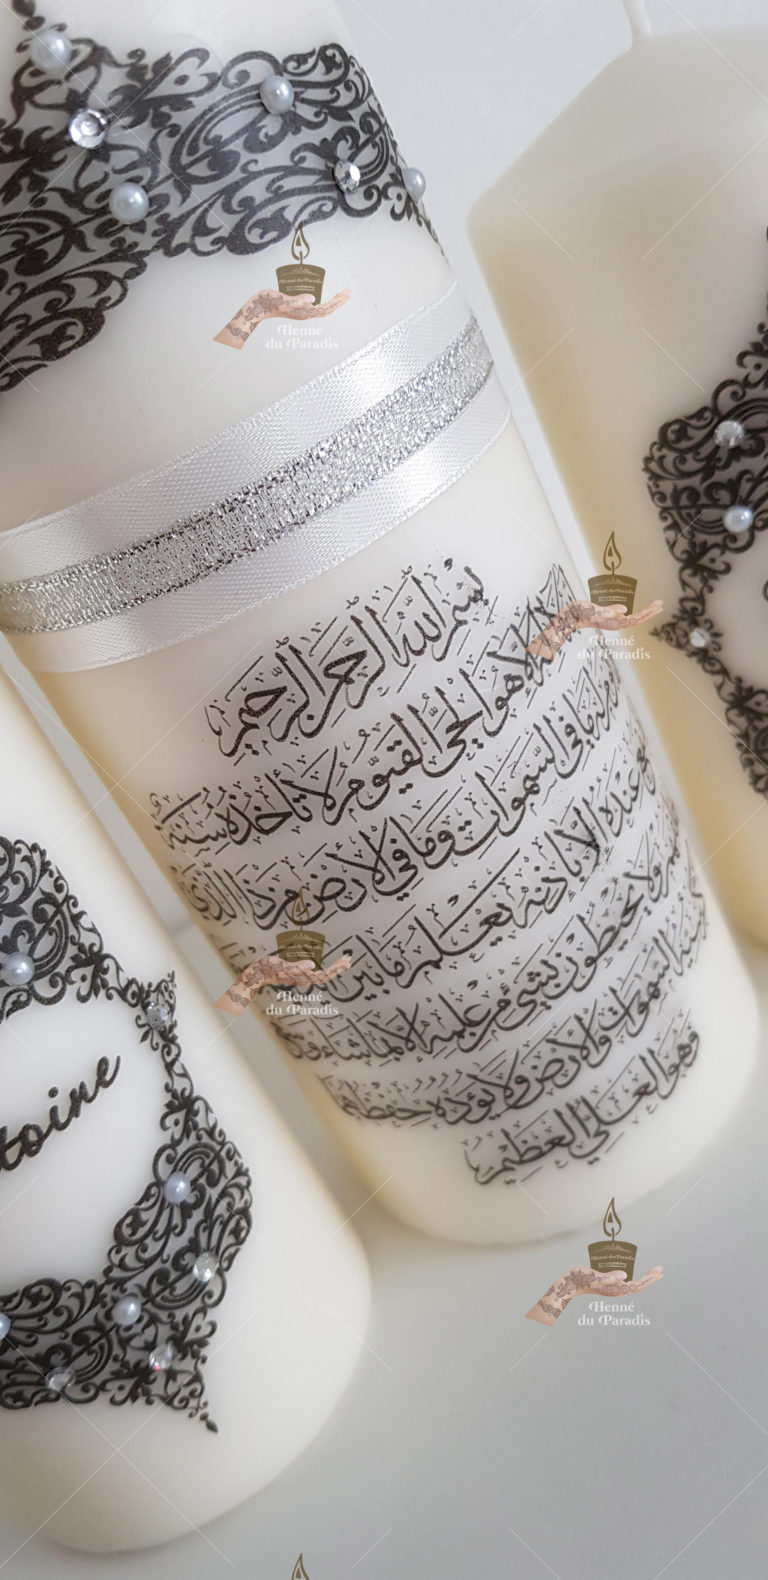 بِسْمِ اللَّهِ الرَّحْمَٰنِ الرَّحِيمِ
إله إلا هو الحي القيوم لا تأخذه سنة
له ما في السموات وما في الأرض من ذا الذي
عنده إلا بإذنه يعلم ما بين
ولا يحيطون بشيء من علمه إلا بما شاء وسع
السموات والأرض ولا يؤده حفظهما
وهو العلي العظيم
toine
Henné
du Paradis
Henné
du Paradis
Henné
du Paradis
Henné
du Paradis